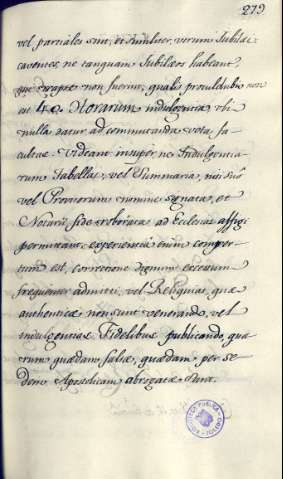 279
vel partiales sint, et similiter, utrum Jubilæi
cautores, ne tanquam Jubilæos habeant,
quæ reapse non fuerint, qualis procul dubio non
est 40. Horarum indulgentia, ubi
nulla datur ad commutanda vota fa-
cultas. Videant insuper, ne Indulgentia-
rum Tabellas, vel Summaria, nisi suo
vel Provisorum nomine signata, et
Notarii fide roborata ad Ecclesias affigi
permittant, experientia enim comper-
tum est, correctione dignum excessum
frequenter admitti, vel Reliquias, quæ
authenticæ non sunt venerando, vel
indulgentias Fidelibus publicando, qua-
rum quædam falsæ, quædam per Se-
dem Apostolicam abrogatæ sunt.
BIBLIOTECA PUBLICA
TOLEDO